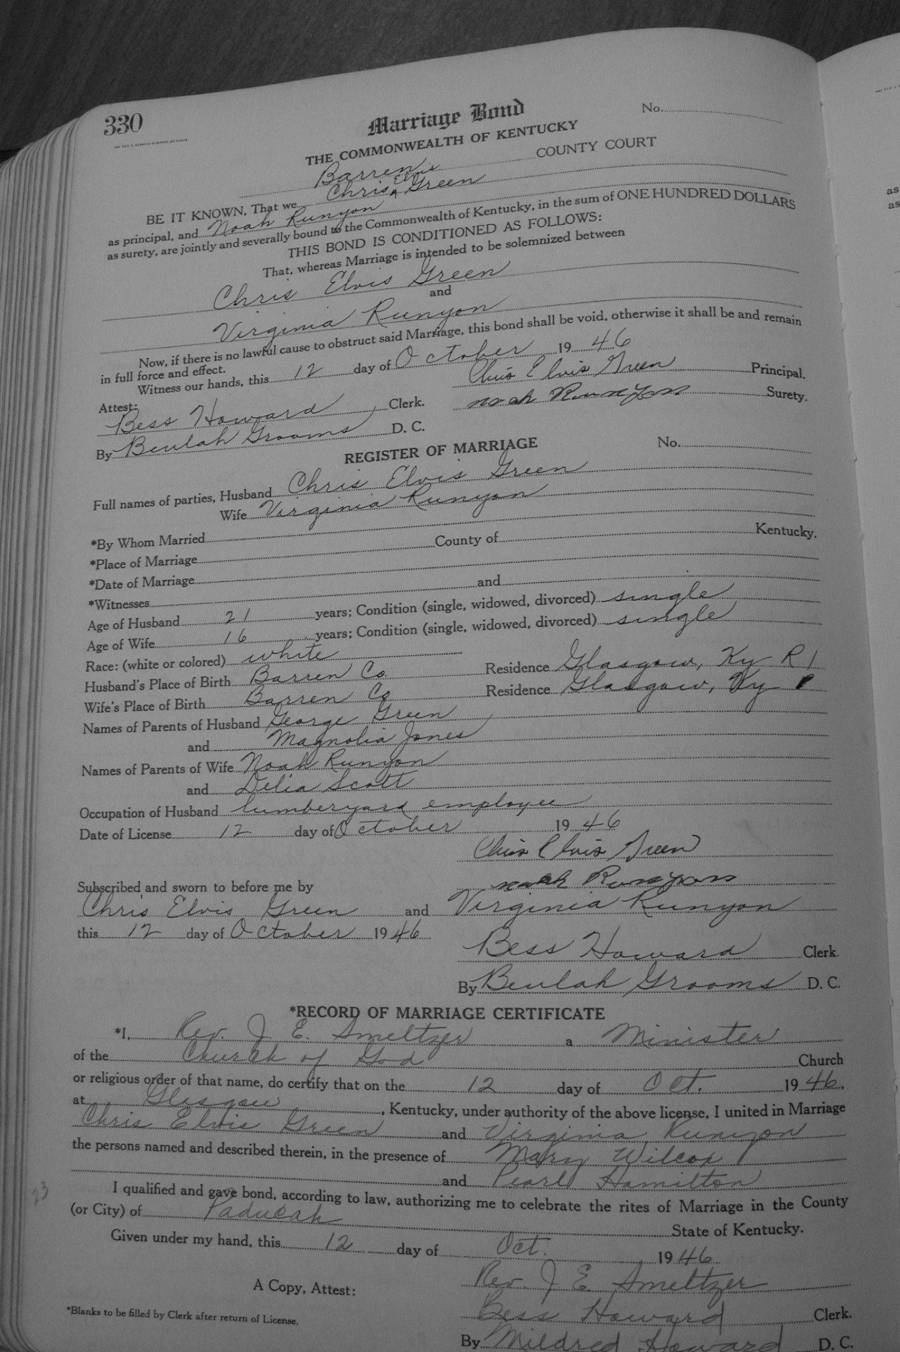 330
Marriage Bond
No.
THE COMMONWEALTH OF KENTUCKY
Barren COUNTY COURT
BE IT KNOWN, That we Chris Elvis Green
as principal, and Noah Runyon
as surety, are jointly and severally bound to the Commonwealth of Kentucky, in the sum of ONE HUNDRED DOLLARS
THIS BOND IS CONDITIONED AS FOLLOWS:
That, whereas Marriage is intended to be solemnized between
Chris Elvis Green
and
Virginia Runyon
Now, if there is no lawful cause to obstruct said Marriage, this bond shall be void, otherwise it shall be and remain
in full force and effect.
Witness our hands, this 12 day of October 1946
Chris Elvis Green Principal.
Attest:
noah Runyon Surety.
Bess Howard Clerk.
By Beulah Grooms D. C.
REGISTER OF MARRIAGE No.
Full names of parties, Husband Chris Elvis Green
Wife Virginia Runyon
*By Whom Married
*Place of Marriage County of Kentucky.
*Date of Marriage
*Witnesses and
Age of Husband 21 years; Condition (single, widowed, divorced) single
Age of Wife 16 years; Condition (single, widowed, divorced) single
Race: (white or colored) white
Husband's Place of Birth Barren Co Residence Glasgow, Ky R 1
Wife's Place of Birth Barren Co Residence Glasgow, Ky
Names of Parents of Husband George Green
and Magnolia Jones
Names of Parents of Wife Noah Runyon
and Delia Scott
Occupation of Husband lumberyard employee
Date of License 12 day of October 1946
Chris Elvis Green
noah Runyon
Subscribed and sworn to before me by
Chris Elvis Green and Virginia Runyon
this 12 day of October 1946
Bess Howard Clerk
By Beulah Grooms D. C.
*RECORD OF MARRIAGE CERTIFICATE
*I, Rev. J E. Smeltzer a Minister
of the Church of God Church
or religious order of that name, do certify that on the 12 day of Oct. 1946.
at Glasgow, Kentucky, under authority of the above license, I united in Marriage
Chris Elvis Green and Virginia Runyon
the persons named and described therein, in the presence of Mary Wilcox
and Pearl Hamilton
23
I qualified and gave bond, according to law, authorizing me to celebrate the rites of Marriage in the County
(or City) of Paducah State of Kentucky.
Given under my hand, this 12 day of Oct. 1946
Rev. J E Smeltzer
A Copy, Attest:
Bess Howard Clerk.
*Blanks to be filled by Clerk after return of License.
By Mildred Howard D. C.